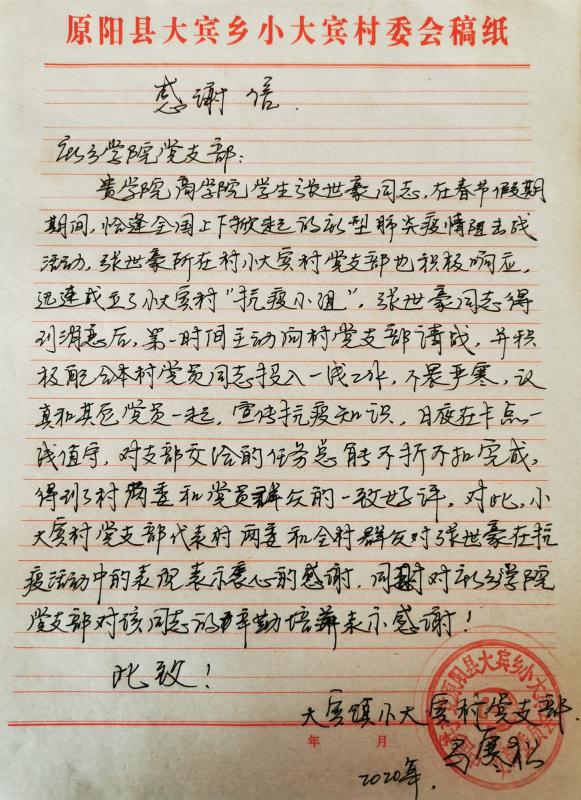 原阳县大宾乡小大宾村委会稿纸
感谢信.
新乡学院党支部:
贵学院商学院学生张世豪同志,在春节假期
期间,恰逢全国上下掀起的新型肺炎疫情阻击战
活动,张世豪所在村小大宾村党支部也积极响应,
迅速成立了小大宾村"抗疫小组"。张世豪同志得
到消息后,第一时间主动向村党支部请战,并积
极配合本村党员同志投入一线工作,不畏严寒,认
真和其它党员一起,宣传抗疫知识,日夜在卡点一
线值守,对支部交给的任务总能不折不扣完成,
得到了村两委和党员群众的一致好评。对此,小
大宾村党支部代表村两委和全村群众对张世豪在抗
疫活动中的表现表示衷心的感谢,同时对新乡学院
党支部对该同志的辛勤培养表示感谢!
此致!
大宾镇小大宾村党支部.
年 月
冯寒松
2020年.
原阳县大宾乡小大宾